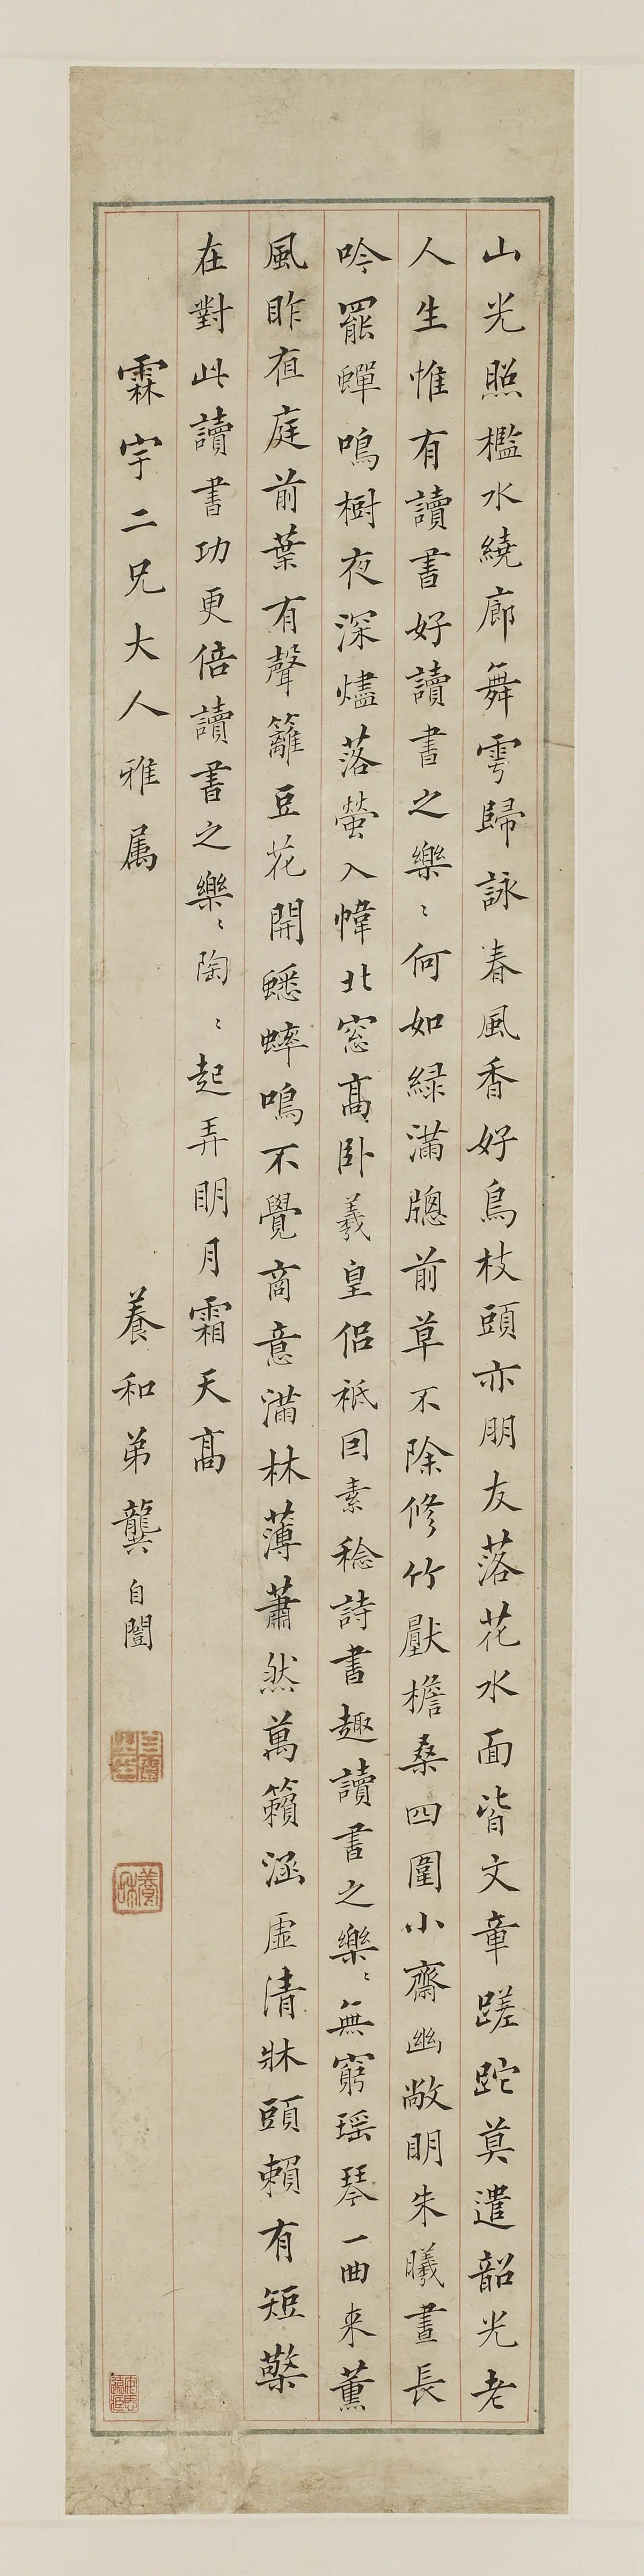 山光照檻水繞廊舞雩歸詠春風香好鳥枝頭亦朋友落花水面皆文章蹉跎莫遣韶光老
人生惟有讀書好讀書之樂〻何如緑滿牎前草不除修竹壓檐桑四圍小齋幽敞明朱曦晝長
吟罷蟬鳴樹夜深燼落螢入幃北窓高卧羲皇侶祗因素稔詩書趣讀書之樂〻無窮瑶琴一曲来薰
風昨夜庭前葉有聲籬豆花開蟋蟀鳴不覺商意滿林薄蕭然萬籟涵虛清牀頭賴有短檠
在對此讀書功更倍讀書之樂〻陶〻起弄明月霜天高
霖宇二兄大人雅属
養和弟龔自闓